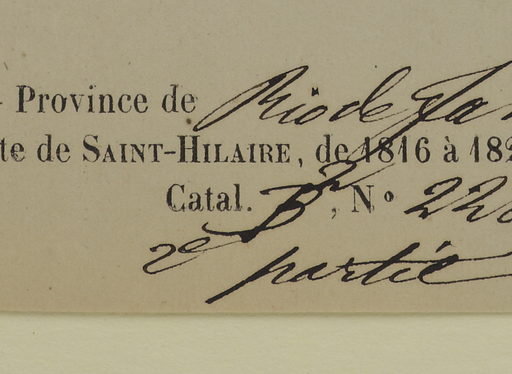 - Province de Rio de Jan
te de SAINT-HILAIRE, de 1816 à 182
Catal. B2, N° 226
2e partie